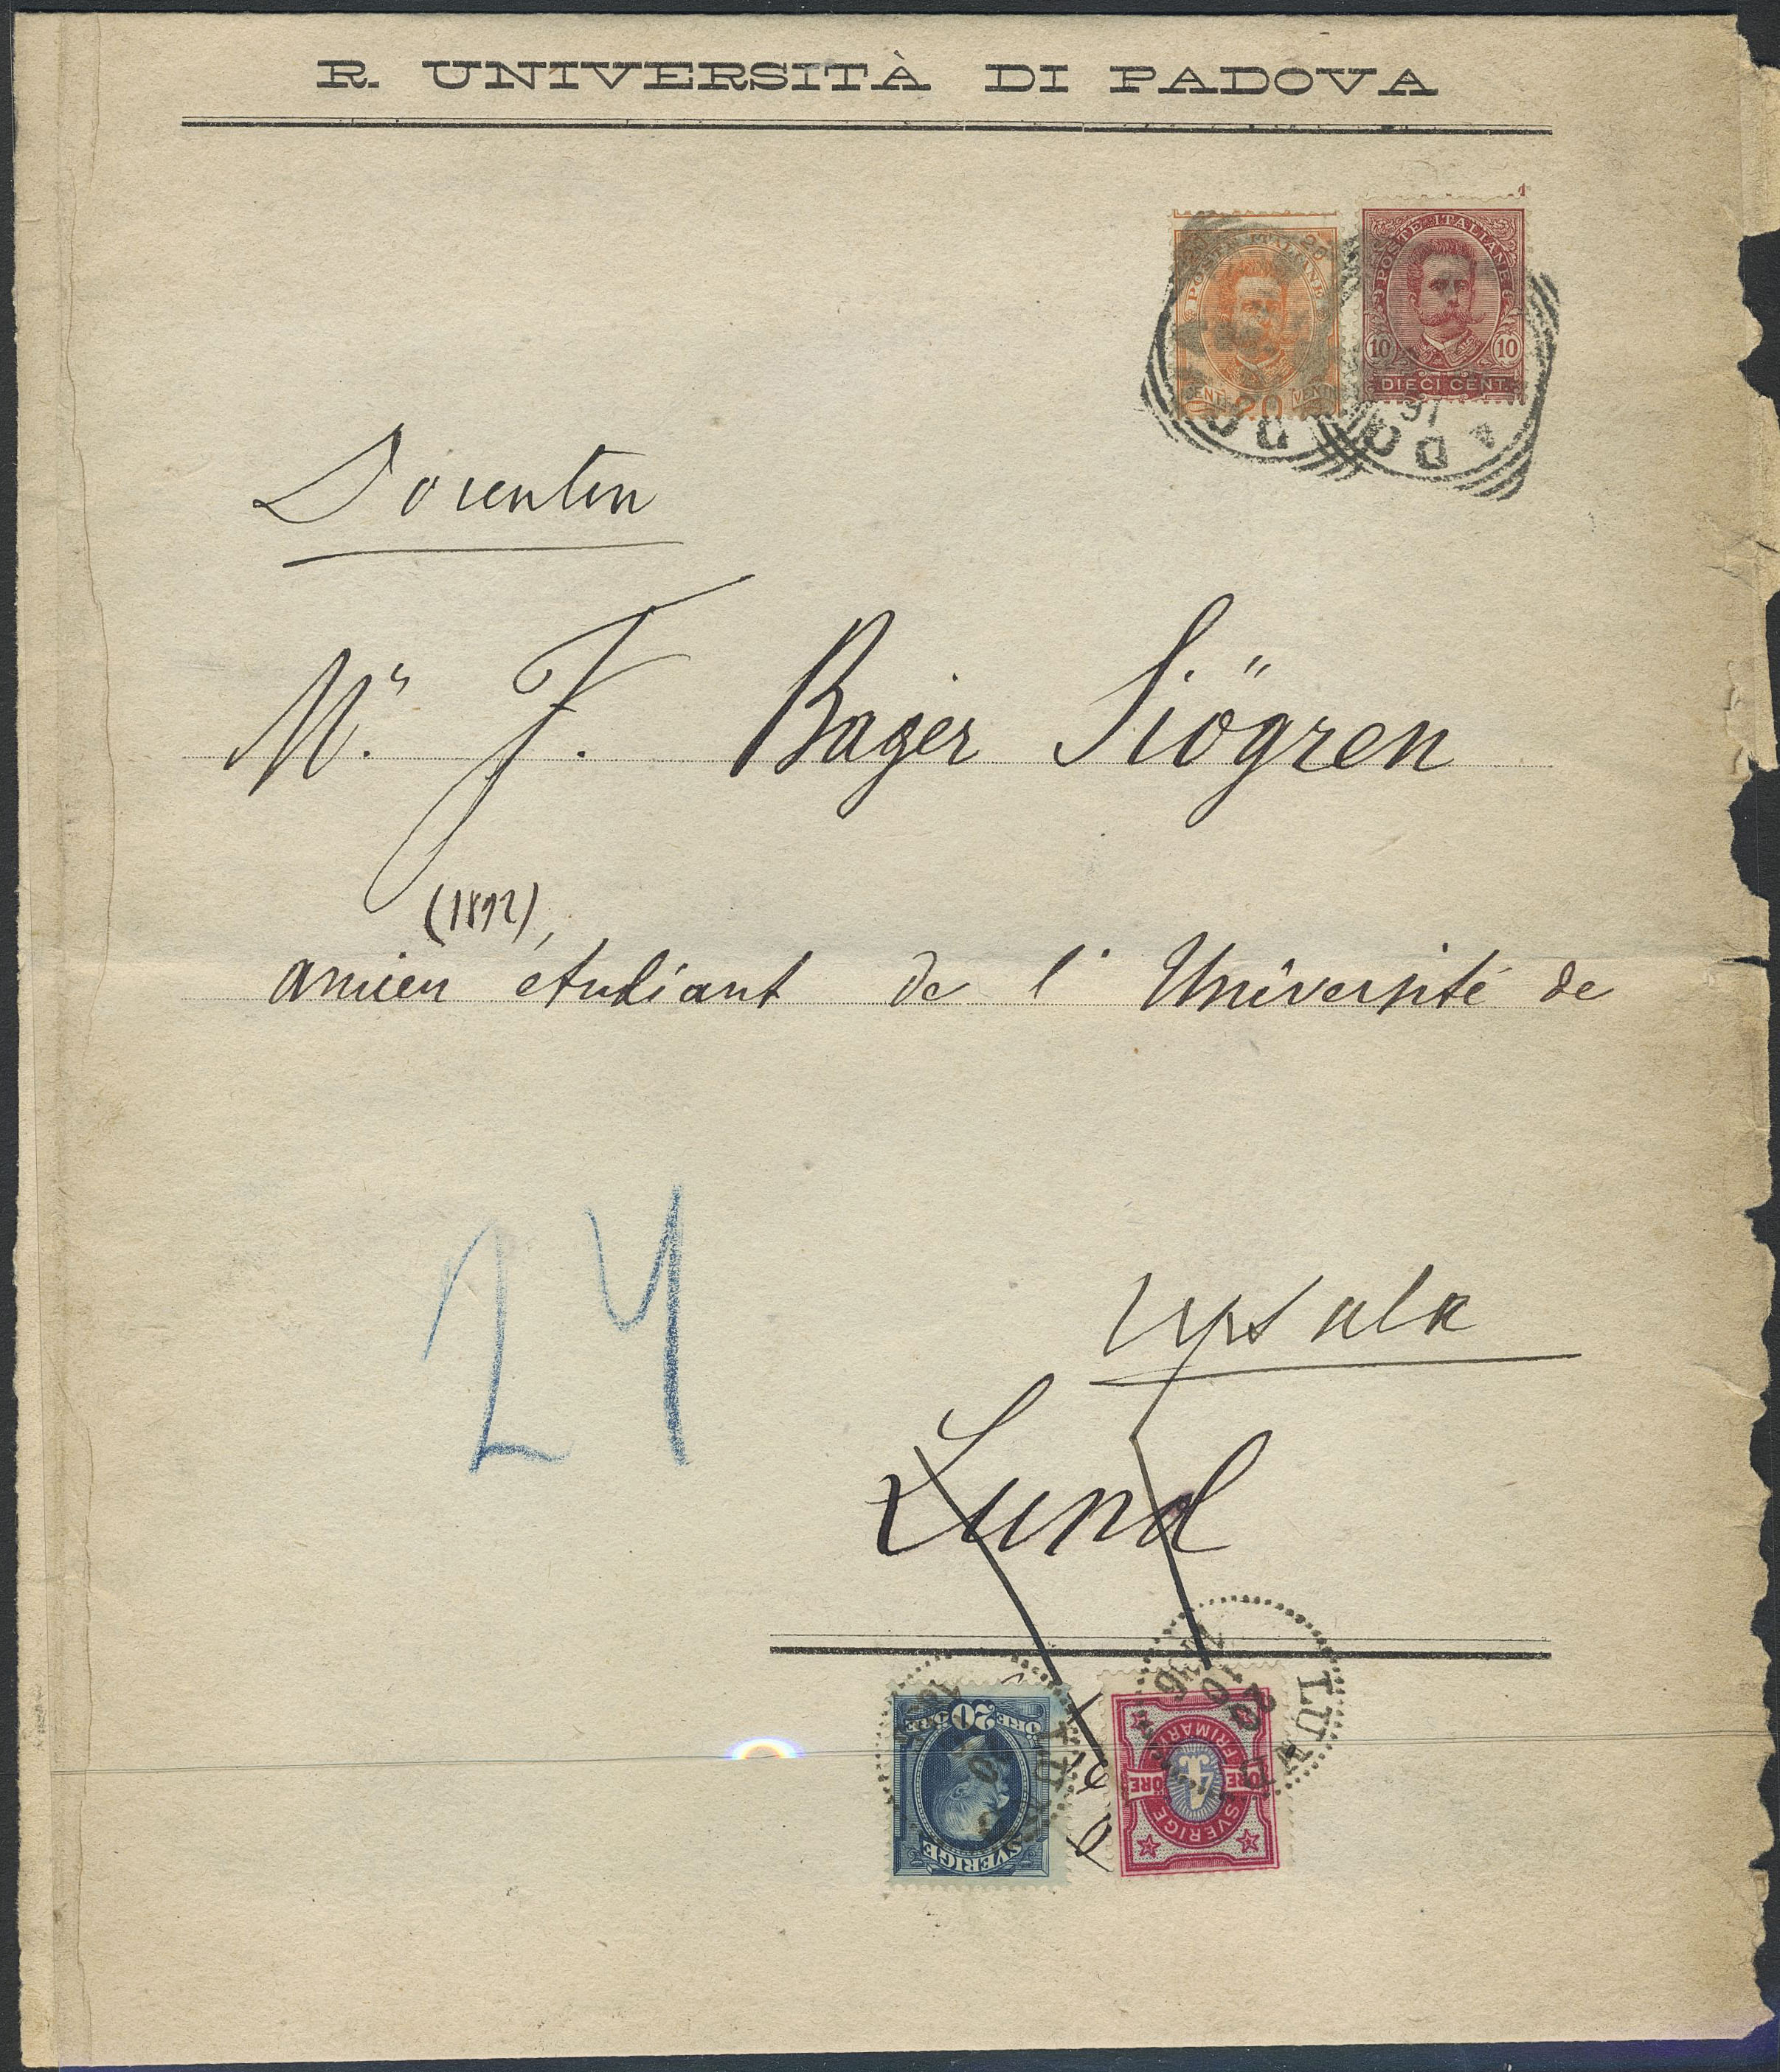 R. UNIVERSITÀ DI PADOVA
POSTE ITALIANE
20 20
CENT. 20 VENTI
POSTE ITALIANE
10 10
DIECI CENT.
Docenten
Mr. F. Bager Siögren
(1892),
ancien étudiant de l'Université de
24
Upsala
Lund
LUND
20
ÖRE 20 ÖRE
SVERIGE
LUND
FRIMÄRKE
ÖRE 4 ÖRE
SVERIGE